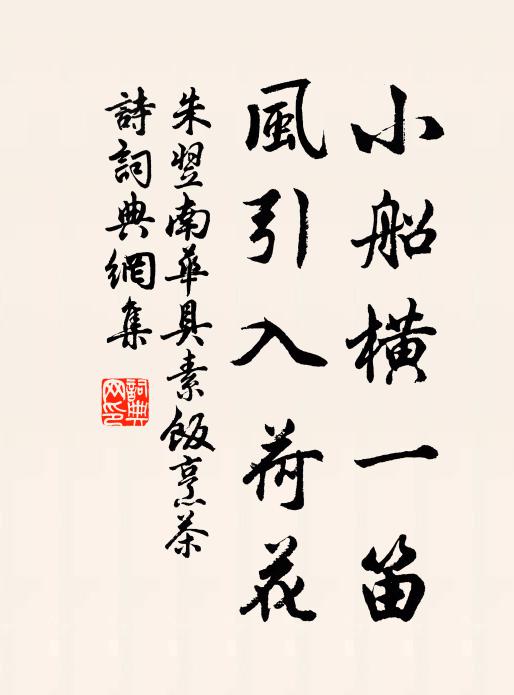 小船橫一笛
風引入荷花
朱翌南華具素飯烹茶
詩詞典網集
詞典网印